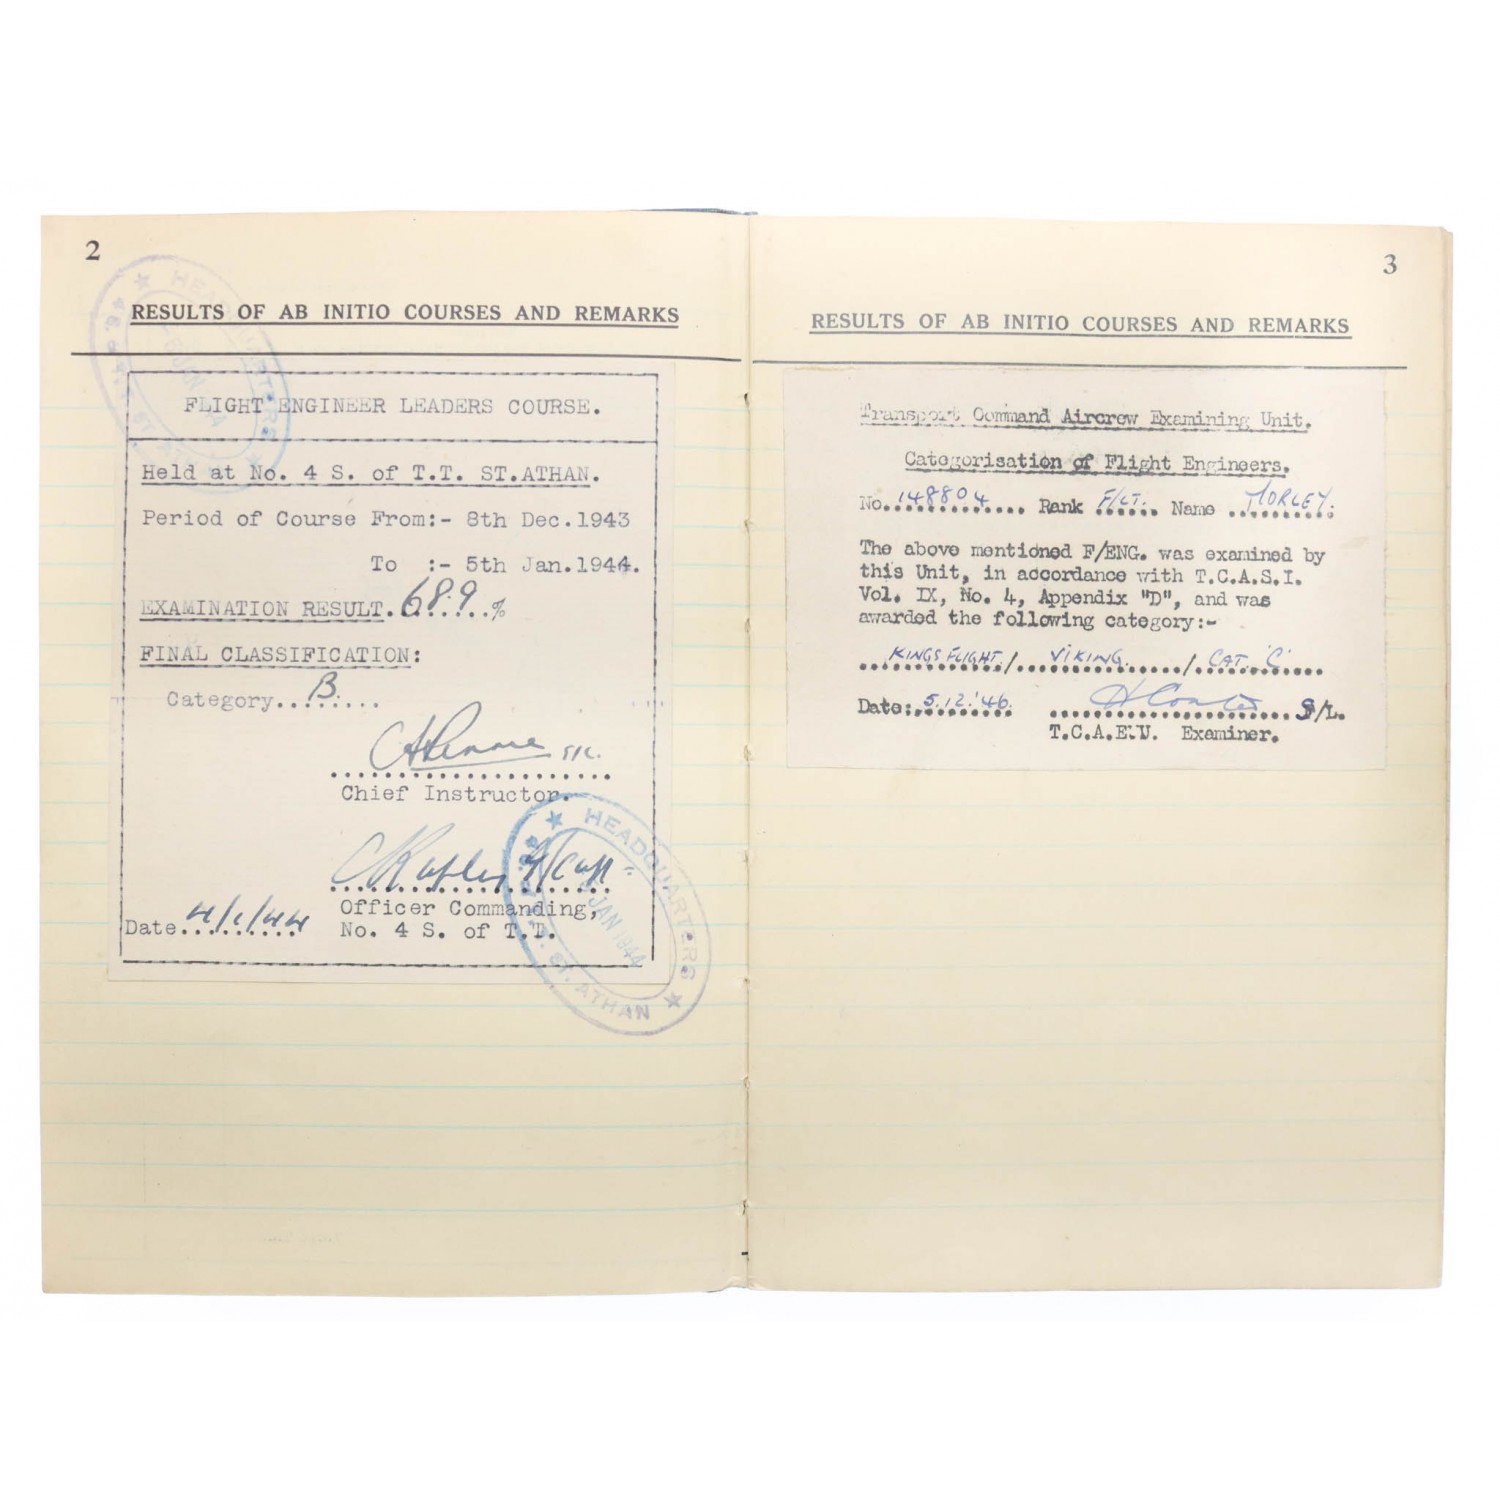 2
RESULTS OF AB INITIO COURSES AND REMARKS
FLIGHT ENGINEER LEADERS COURSE.
Held at No. 4 S. of T.T. ST.ATHAN.
Period of Course From:- 8th Dec.1943
To :- 5th Jan.1944.
EXAMINATION RESULT. 68.9 %
FINAL CLASSIFICATION:
Category....B.....
Chief Instructor.
Officer Commanding,
Date...4/1/44 No. 4 S. of T.T.
HEADQUARTERS
JAN 1944
ST. ATHAN
3
RESULTS OF AB INITIO COURSES AND REMARKS
Transport Command Aircrew Examining Unit.
Categorisation of Flight Engineers.
No. 148804 Rank F/LT. Name MORLEY.
The above mentioned F/ENG. was examined by
this Unit, in accordance with T.C.A.S.I.
Vol. IX, No. 4, Appendix "D", and was
awarded the following category:-
KINGS FLIGHT / VIKING. / CAT. 'C'
Date: 5.12.'46. S/L.
T.C.A.E.U. Examiner.